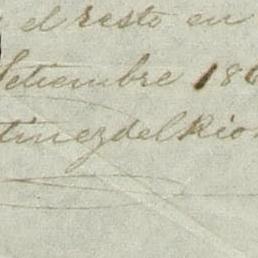 y el resto en
Setiembre 186
tinez del Rio